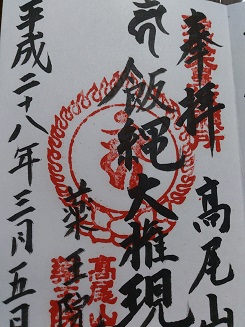 奉拝
高尾山
飯縄大権現
薬王院
平成二十八年三月五日